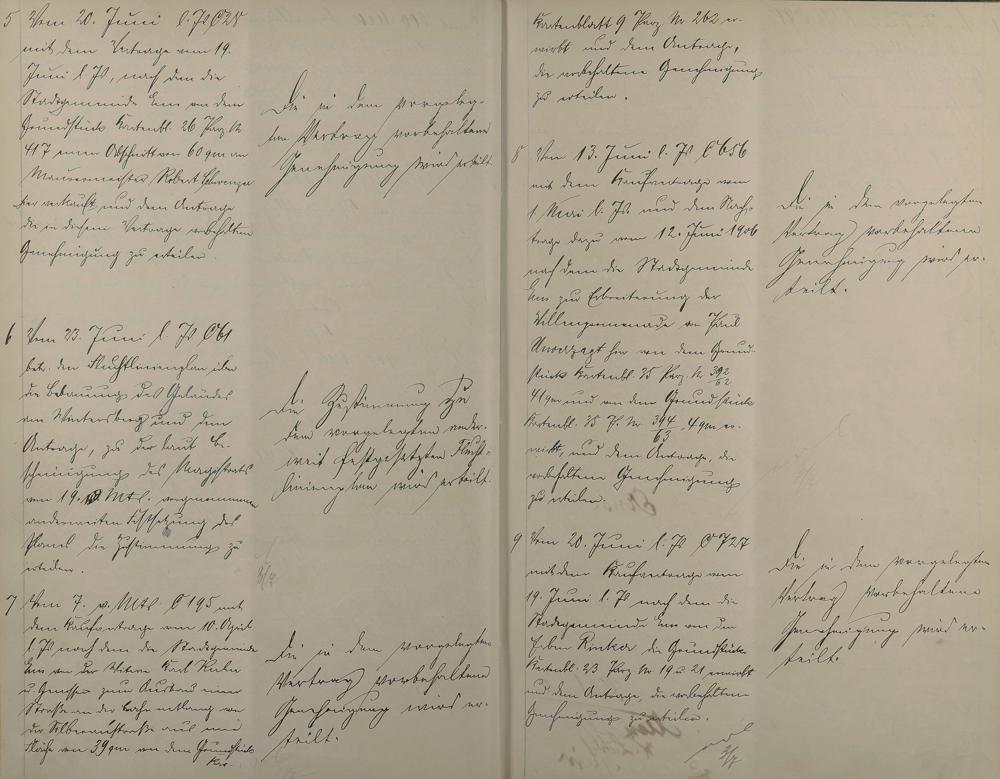 5 Vom 20. Juni l. Js C 28
mit dem Vertrage vom 19.
Juni l. Js, nach dem die
Stadtgemeinde Ems von dem
Grundstück Kartenbl. 26 Parz. Nr
417 einen Abschnitt von 60 qm an
Maurermeister Robert
hier verkauft und dem Antrage
die in diesem Vertrage vorbehaltene
Genehmigung zu erteilen.
Die in dem vorgeleg-
ten Vertrag vorbehaltene
Genehmigung wird erteilt.
6 Vom 23. Juni l. Js C 61
betr. den Fluchtlinienplan über
die Bebauung des Geländes
am Wintersberg und dem
Antrage, zu der laut Be-
scheinigung des Magistrats
vom 19. Mts. vorgenommenen
anderweiten Festsetzung des
Planes die Zustimmung zu
erteilen.
Die Zustimmung zu
dem vorgelegten ander-
weit festgesetzten Flucht-
linienplan wird erteilt.
7 Vom 7. v. Mts. C 195 mit
dem Kaufvertrage vom 10. April
l. Js nach dem die Stadtgemeinde
Ems von der Witwe Karl
u Genossen zum Ausbau einer
Straße an der Bahn entlang von
der Silberaustraße aus eine
Fläche von 39 qm von dem Grundstück
Kar-
Die in dem vorgelegten
Vertrag vorbehaltene
Genehmigung wird er-
teilt.
Kartenblatt 9 Parz. Nr. 262 er-
wirbt und dem Antrage,
die vorbehaltene Genehmigung
zu erteilen.
8 Vom 13. Juni l. Js C 656
mit dem Kaufvertrage vom
1 Mai l. Js. und dem Nach-
trage dazu vom 12. Juni 1906
nach dem die Stadtgemeinde
Ems zur Erbreiterung der
Villenpromenade von Paul
Unverzagt hier von dem Grund-
stück Kartenbl. 35 Parz. Nr. 392/62
41 qm und von dem Grundstück
Kartenbl. 35 P. Nr 394/63 4 qm er-
wirbt, und dem Antrage, die
vorbehaltene Genehmigung
zu erteilen.
Die in dem vorgelegten
Vertrag vorbehaltene
Genehmigung wird er-
teilt.
9 Vom 20. Juni l. Js C 727
mit dem Kaufvertrage vom
19. Juni l. Js nach dem die
Stadtgemeinde Ems von den
Erben die Grundstücke
Kartenbl. 23 Parz Nr 19 u 21, erwirbt
und dem Antrage, die vorbehaltene
Genehmigung zu erteilen.
Die in dem vorgelegten
Vertrag vorbehaltene
Genehmigung wird er-
teilt.